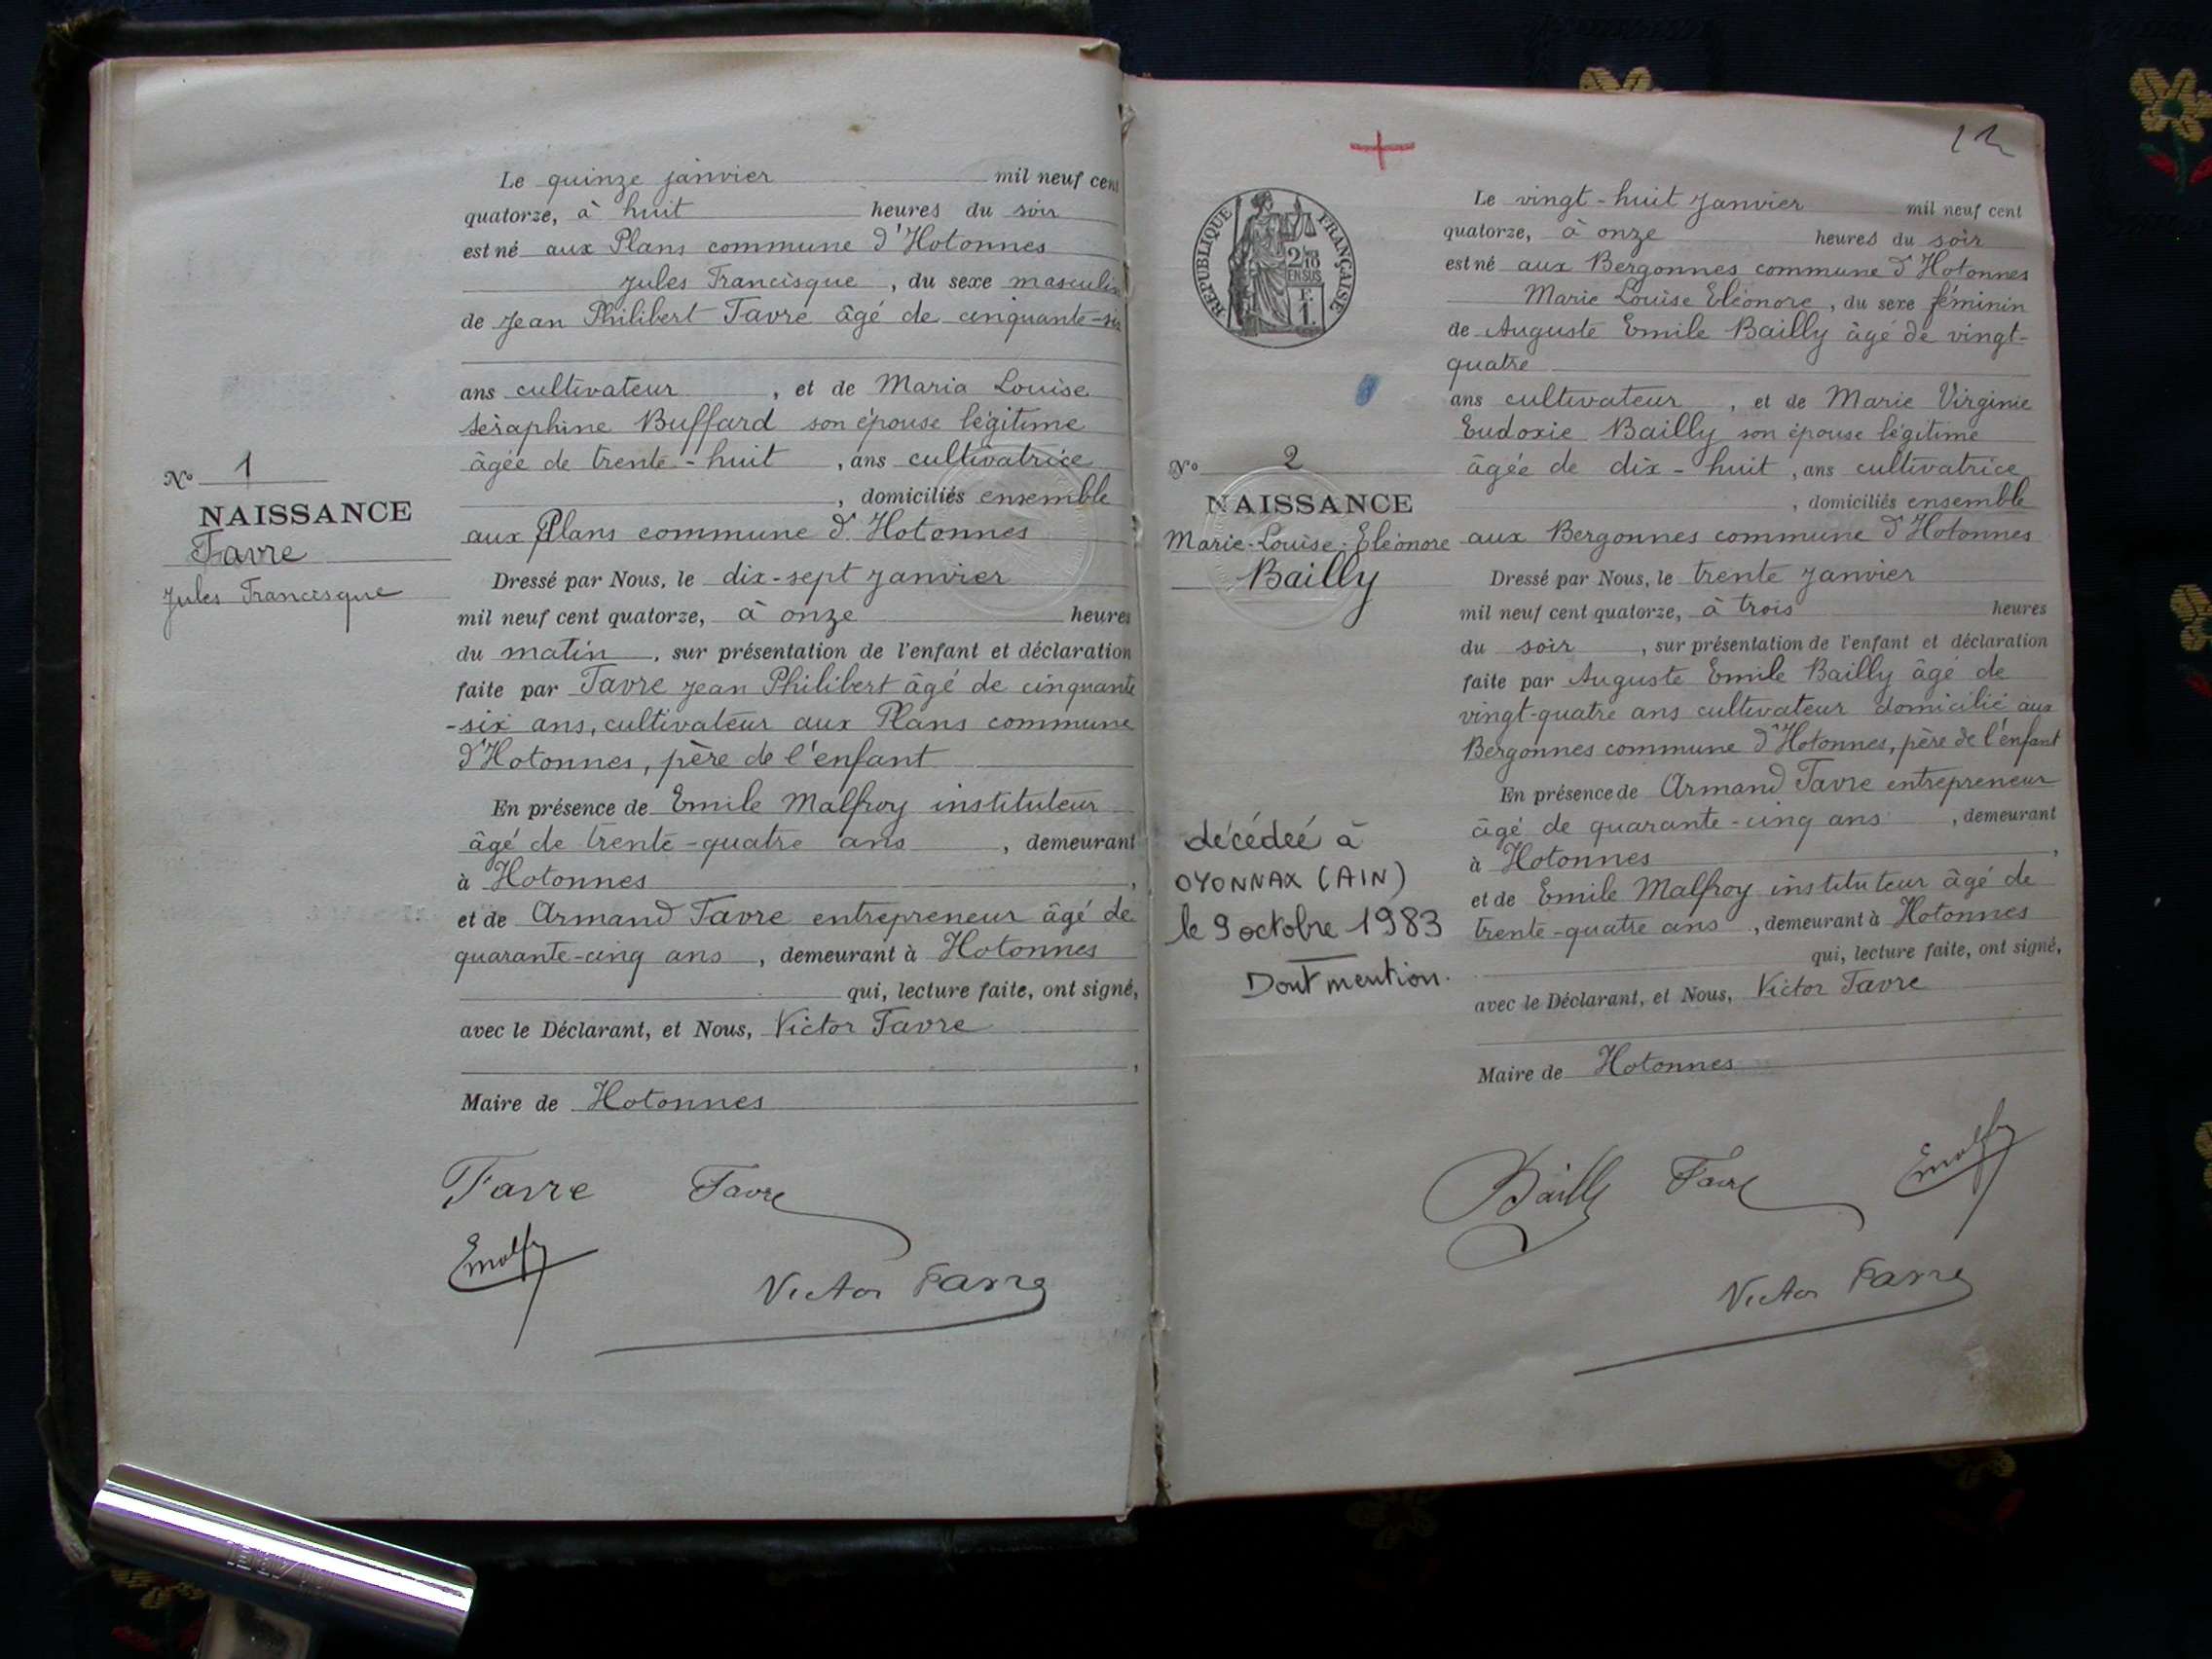 Le quinze janvier mil neuf cent
quatorze, à huit heures du soir
est né aux Plans commune d'Hotonnes
Jules Francisque, du sexe masculin
de Jean Philibert Favre âgé de cinquante-six
ans cultivateur, et de Maria Louise
Séraphine Buffard son épouse légitime
âgée de trente-huit, ans cultivatrice
, domiciliés ensemble
aux Plans commune d'Hotonnes
N° 1
NAISSANCE
Favre
Jules Francisque
Dressé par Nous, le dix-sept janvier
mil neuf cent quatorze, à onze heures
du matin, sur présentation de l'enfant et déclaration
faite par Favre Jean Philibert âgé de cinquante
-six ans, cultivateur aux Plans commune
d'Hotonnes, père de l'enfant
En présence de Emile Malfroy instituteur
âgé de trente-quatre ans, demeurant
à Hotonnes,
et de Armand Favre entrepreneur âgé de
quarante-cinq ans, demeurant à Hotonnes
qui, lecture faite, ont signé,
avec le Déclarant, et Nous, Victor Favre
,
Maire de Hotonnes
Favre Favre
Emalfy
Victor Favre
12
RÉPUBLIQUE FRANÇAISE
2/10
EN SUS
F.
1.
Le vingt-huit janvier mil neuf cent
quatorze, à onze heures du soir
est né aux Bergonnes commune d'Hotonnes
Marie Louise Eléonore, du sexe féminin
de Auguste Emile Bailly âgé de vingt-
quatre
ans cultivateur, et de Marie Virginie
Eudoxie Bailly son épouse légitime
âgée de dix-huit, ans cultivatrice
, domiciliés ensemble
aux Bergonnes commune d'Hotonnes
N° 2
NAISSANCE
Marie-Louise-Eléonore
Bailly
Dressé par Nous, le trente janvier
mil neuf cent quatorze, à trois heures
du soir, sur présentation de l'enfant et déclaration
faite par Auguste Emile Bailly âgé de
vingt-quatre ans cultivateur domicilié aux
Bergonnes commune d'Hotonnes, père de l'enfant
En présence de Armand Favre entrepreneur
âgé de quarante-cinq ans, demeurant
à Hotonnes,
et de Emile Malfroy instituteur âgé de
trente-quatre ans, demeurant à Hotonnes
qui, lecture faite, ont signé,
avec le Déclarant, et Nous, Victor Favre
Maire de Hotonnes
décédée à
OYONNAX (AIN)
le 9 octobre 1983
Dont mention.
Bailly Favre Emalfy
Victor Favre